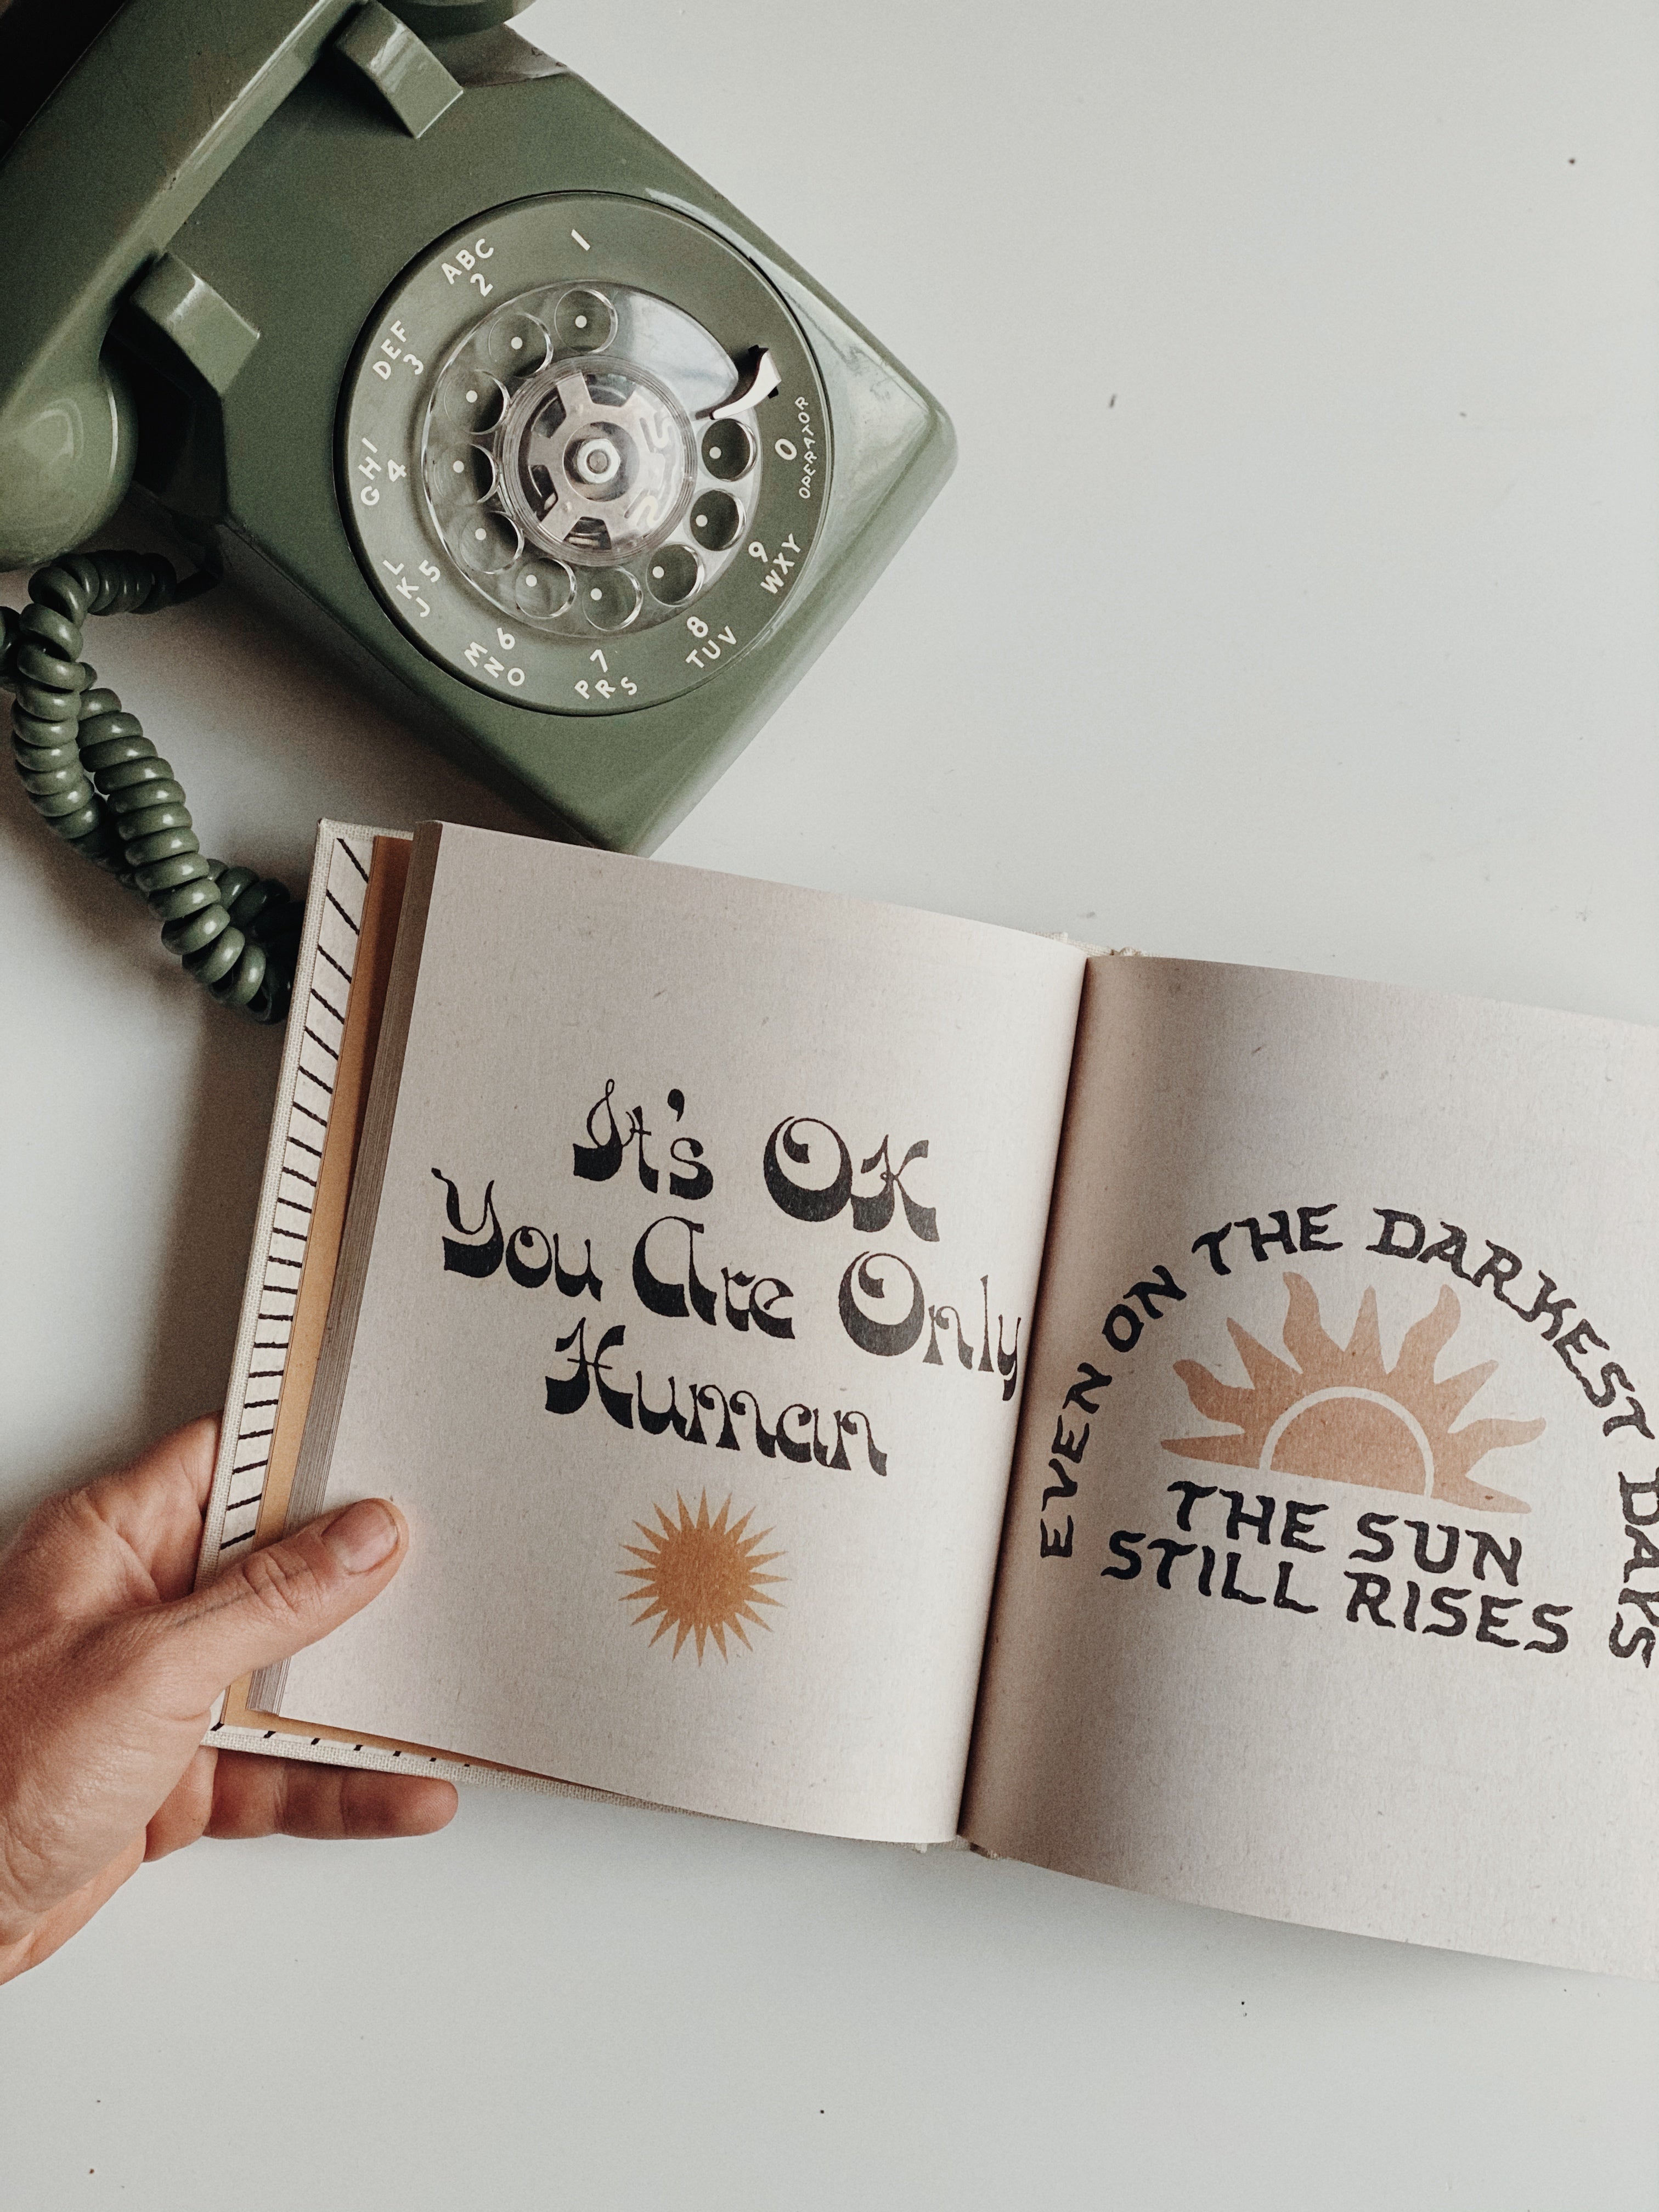 1
ABC
2
DEF
3
GHI
4
JKL
5
MNO
6
7
PRS
8
TUV
9
WXY
0
OPERATOR
It's OK
You Are Only
Human
EVEN ON THE DARKEST DAYS
THE SUN
STILL RISES